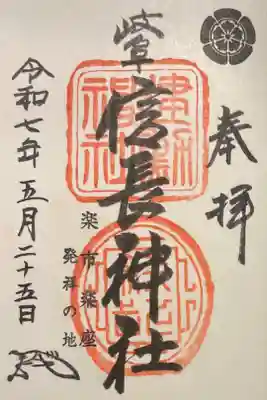 奉拝
岐阜信長神社
建勲神社
楽市楽座
発祥の地
令和七年五月二十五日